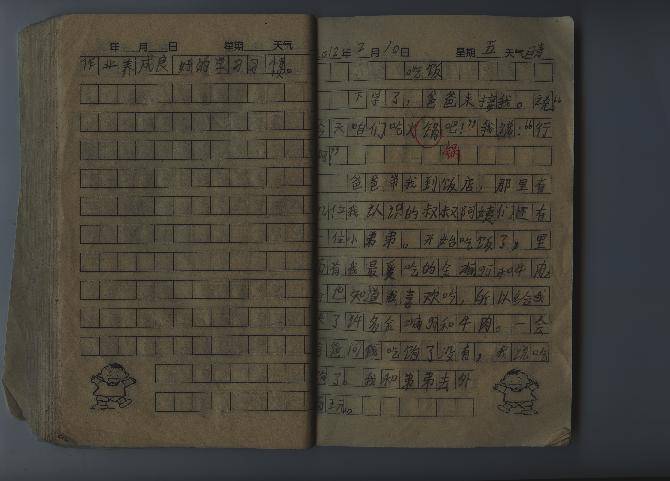 年 月 日 星期 天气
作业养成良好的学习习惯。
2012年2月10日 星期五 天气晴
吃饭
下学了，爸爸来接我。说“
今天咱们吃火锅吧！”我说：“行
啊！”
锅
爸爸带我到饭店，那里有
几位我认识的叔叔阿姨们还有
一位小弟弟。开始吃饭了，里
面有我最爱吃的金 和牛肉
知道我喜欢吃，所以给我
了许多金 和牛肉。一会
爸爸问我吃饱了没有，我说吃
饱了。我和弟弟去外
面玩。